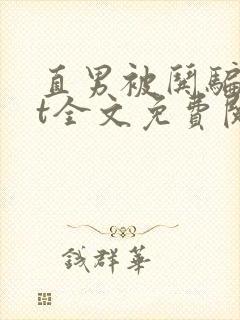 直男被闐騙
t全文免費閱
錢群華